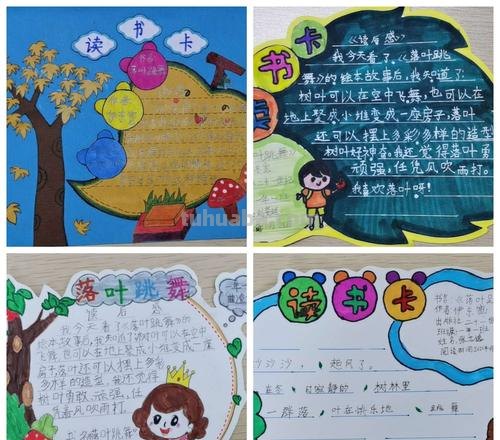 读 书 卡
书名
落叶跳舞
作者
伊东宽
书
卡
《读后感》
我今天看了《落叶跳
舞》的绘本故事后,我知道了:
树叶可以在空中飞舞,也可以在
地上聚成小堆变成一座房子,落叶
还可以摆上多彩/多样的造型
树叶好神奇。我还觉得落叶勇
顽强,任凭风吹雨打。
我喜欢落叶呀!
tuhuab
落叶跳舞
读 后 感
我今天看了《落叶跳舞》的
绘本故事后,我知道了树叶可以在空中
飞舞,也可以在地上聚成一座
房子落叶还可以摆上多彩
多样的造型。我还觉得
树叶勇敢、顽强、任
凭风吹雨打。
读书卡
书名:《落叶跳
作者:伊东宽
出版社:二十一世
班级:
姓名:
阅读时间:
沙沙沙, 起风了。
在 寂静的 树林里
一群落 叶在快乐地 跳舞